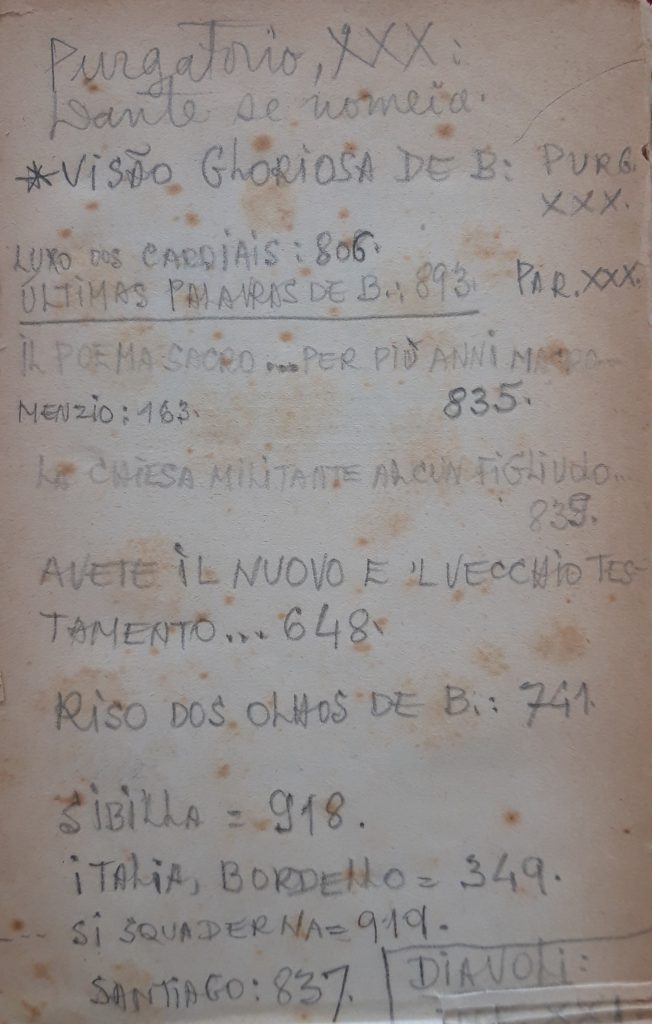 Purgatorio, XXX:
Dante se nomeia.
*VISÃO GLORIOSA DE B: PURG.
XXX.
LUXO DOS CARDIAIS: 806.
ÚLTIMAS PALAVRAS DE B.: 893. PAR. XXX.
IL POEMA SACRO...PER PIÙ ANNI MACRO...
MENZIO: 163. 835.
LA CHIESA MILITANTE ALCUN FIGLIUOLO...
839.
AVETE IL NUOVO E 'L VECCHIO TES-
TAMENTO... 648.
RISO DOS OLHOS DE B.: 741.
SIBILLA = 918.
ITALIA, BORDELLO = 349.
SI SQUADERNA = 919.
SANTIAGO: 837. DIAVOLI: